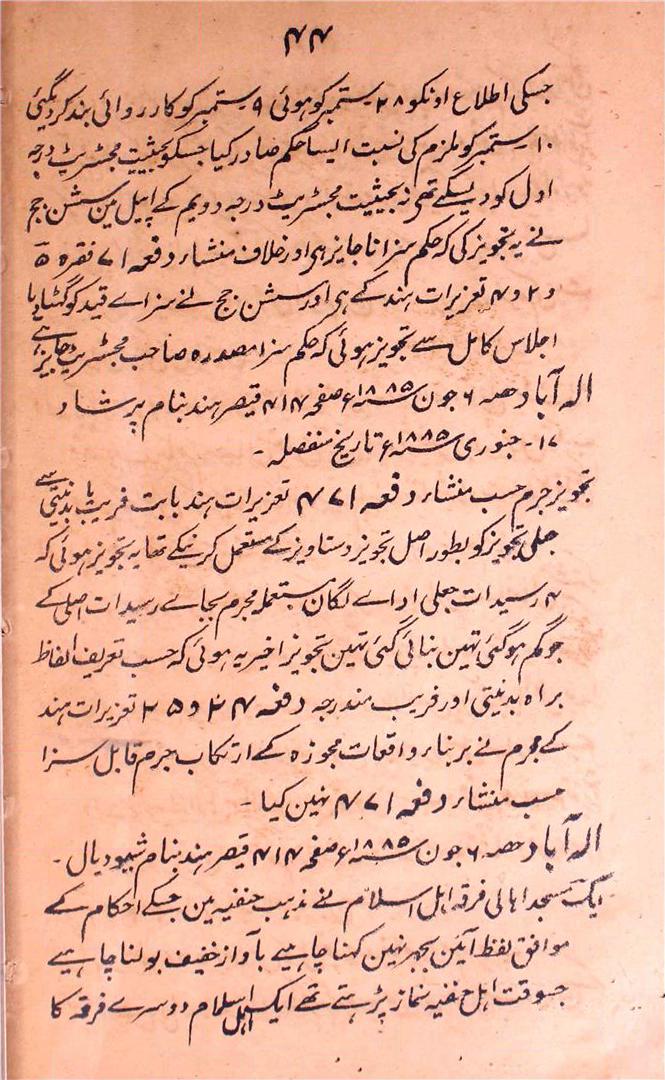 ۴۴
جسکی اطلاع اونکو ۲۸ ستمبر کو ہوئی ۹ ستمبر کو کارروائی بند کردیگئی
۱۰ ستمبر کو ملزم کی نسبت ایسا حکم صادر کیا جسکو بحیثیت مجسٹریٹ درجہ
اول کو دیسکتے تھی نہ بحیثیت مجسٹریٹ درجہ دویم کے اپیل مین سشن جج
نے یہ تجویز کی کہ حکم سزا ناجایز ہی اور خلاف منشاء دفعہ ۷۱ فقرہ ۵
و ۲ و ۴ تعزیرات ہند کے ہی اور سشن جج نے سزاے قید کو گھٹا دیا
اجلاس کامل سے تجویز ہوئی کہ حکم سزا مصدرہ صاحب مجسٹریٹ جایز ہے
الہ آباد حصہ ۶ جون سنہ ۱۸۸۵ء صفحہ ۴۱۴ قیصر ہند بنام پرشاد
۱۷۔ جنوری سنہ ۱۸۸۵ء تاریخ منفصلہ ۔
تجویز جرم حسب منشاء دفعہ ۴۷۱ تعزیرات ہند بابت فریب یا بدنیتی سے
جعلی تجویز کو بطور اصل تجویز دستاویز کے مستعمل کرنیکے تھا یہ تجویز ہوئی کہ
۴ رسیدات جعلی اداے لگان مستعملہ مجرم بجاے رسیدات اصلی کے
جو گم ہوگئی تھین بنائی گئی تھین تجویز اخیر یہ ہوئی کہ حسب تعریف الفاظ
براہ بدنیتی اور فریب مندرجہ دفعہ ۲۴ و ۲۵ تعزیرات ہند
کے مجرم نے بر بناء واقعات مجوزہ کے ارتکاب جرم قابل سزا
حسب منشاء دفعہ ۴۷۱ نہین کیا ۔
الہ آباد حصہ ۶ جون سنہ ۱۸۸۵ء صفحہ ۴۱۴ قیصر ہند بنام شیو دیال ۔
یک مسجد اہالی فرقہ اہل اسلام نے مذہب حنفیہ مین جسکے احکام کے
موافق لفظ آمین بجہر نہین کہنا چاہیے بآواز خفیف بولنا چاہیے
جسوقت اہل حنفیہ نماز پڑہتے تھے ایک اہل اسلام دوسرے فرقہ کا